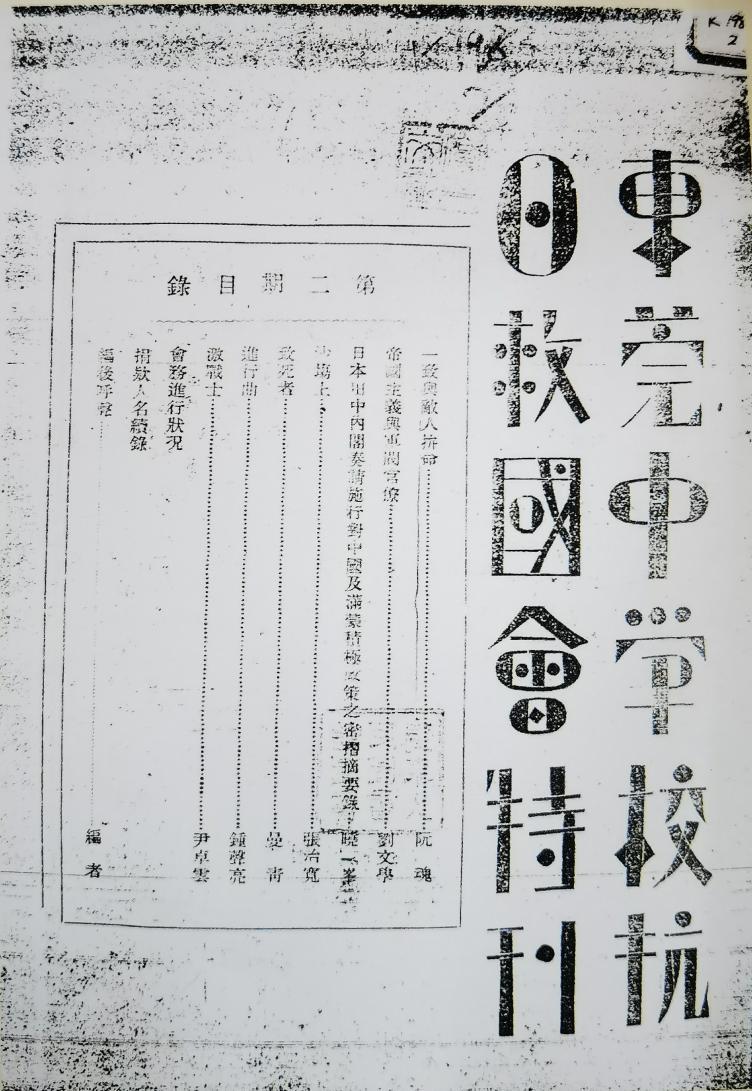 K 198
2
東莞中学校抗
日救國會特刊
第二期目錄
一致與敵人拚命 阮魂
帝國主義與軍閥官僚 劉文學
日本田中內閣奏請施行對中國及滿蒙積極政策之密摺摘要錄 曉峯
沙塲上 張冶寬
致死者 晏靑
進行曲 鍾犖亮
激戰士 尹卓雲
會務進行狀况
捐欵人名續錄
編後 編者